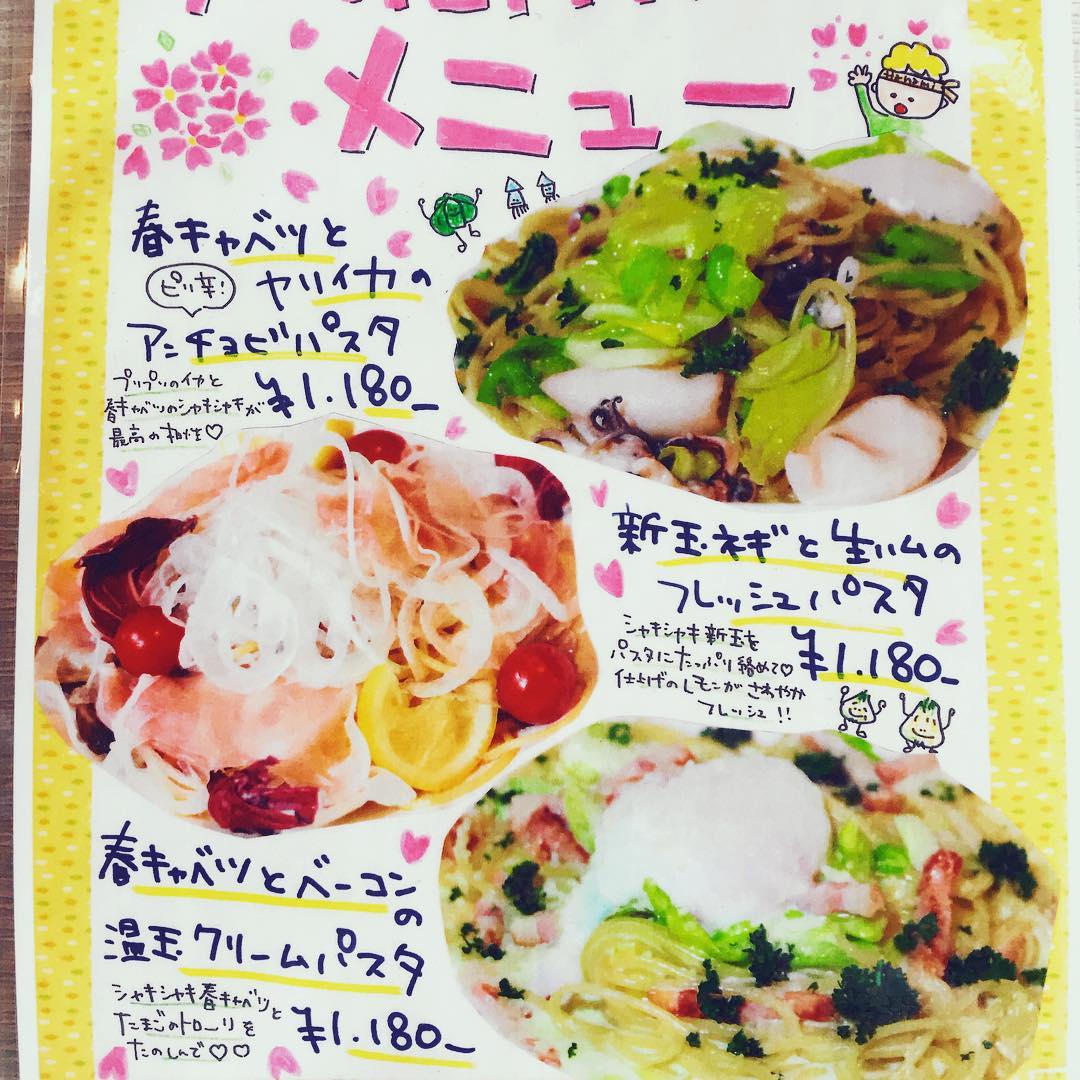 メニュー
春キャベツと
ピリ辛!
ヤリイカの
アンチョビパスタ
プリプリのイカと
春キャベツのシャキシャキが
最高の相性♡
¥1.180_
新玉ネギと生ハムの
フレッシュパスタ
シャキシャキ新玉を
パスタにたっぷり絡めて♡
仕上げのレモンがさわやか
フレッシュ!!
¥1.180_
春キャベツとベーコンの
温玉クリームパスタ
シャキシャキ春キャベツと
たまごのトローリを
たのしんで♡♡
¥1.180_